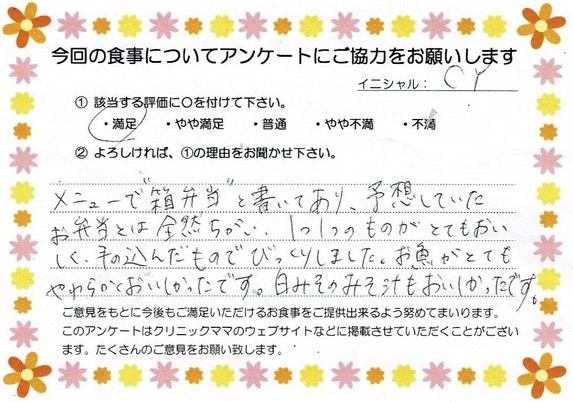 今回の食事についてアンケートにご協力をお願いします
イニシャル： CY
① 該当する評価に○を付けて下さい。
・満足 ・やや満足 ・普通 ・やや不満 ・不満
② よろしければ、①の理由をお聞かせ下さい。
メニューで"箱弁当"と書いてあり、予想していた
お弁当とは全然ちがい、1つ1つのものがとてもおい
しく、手の込んだものでびっくりしました。お魚がとても
やわらかくおいしかったです。白みそのみそ汁もおいしかったです。
ご意見をもとに今後もご満足いただけるお食事をご提供出来るよう努めてまいります。
このアンケートはクリニックママのウェブサイトなどに掲載させていただくことがござい
ます。たくさんのご意見をお願い致します。